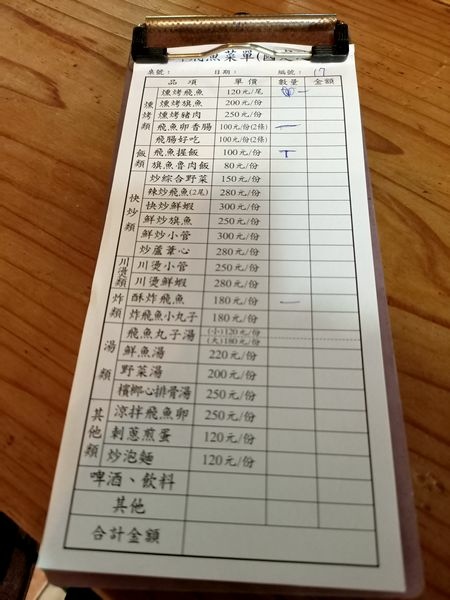 飛魚菜單(國
桌號： 日期： 編號： 17
品 項 單 價 數量 金額
燻烤類
燻烤飛魚 120元/尾 一
燻烤旗魚 200元/份
燻烤豬肉 250元/份
飛魚卵香腸 100元/份(2條) 一
飛腸好吃 100元/份(2條)
飯類
飛魚握飯 100元/份 T
旗魚魯肉飯 80元/份
快炒類
炒綜合野菜 150元/份
辣炒飛魚(2尾) 280元/份
快炒鮮蝦 300元/份
鮮炒旗魚 250元/份
鮮炒小管 300元/份
炒蘆葦心 280元/份
川燙類
川燙小管 250元/份
川燙鮮蝦 280元/份
炸類
酥炸飛魚 180元/份 一
炸飛魚小丸子 180元/份
湯類
飛魚丸子湯 (小)120元/份
(大)180元/份
鮮魚湯 220元/份
野菜湯 200元/份
檳榔心排骨湯 250元/份
其他類
涼拌飛魚卵 250元/份
刺蔥煎蛋 120元/份
炒泡麵 120元/份
啤酒、飲料
其他
合計金額